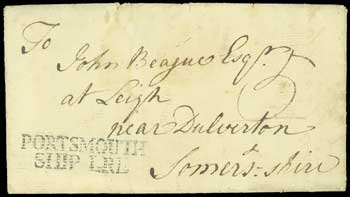 To
John Beague Esqr.
at Leigh
near Dulverton
Somerst-shire
PORTSMOUTH
SHIP LRE